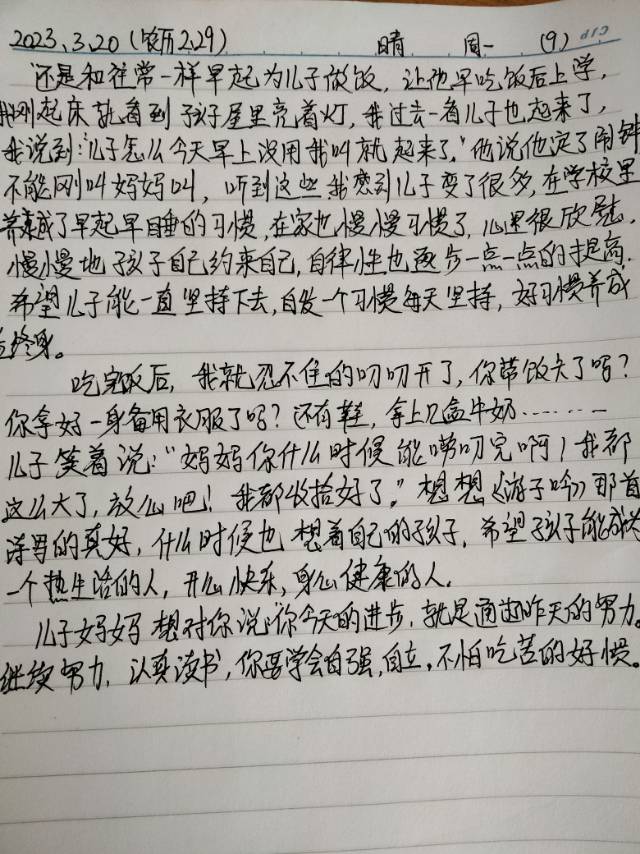 2023.3.20(农历2.29) 晴 周一 (9)
还是和往常一样早起为儿子做饭，让他早吃饭后上学，
我刚起床就看到孩子屋里亮着灯，我过去一看儿子也起来了，
我说到:"儿子怎么今天早上没用我叫就起来了."他说他定了闹钟
不能刚叫妈妈叫，听到这些我感到儿子变了很多，在学校里
养成了早起早自睡的习惯，在家也慢慢习惯了，心里很欣慰，
慢慢地孩子自己约束自己，自律性也逐步一点一点的提高.
希望儿子能一直坚持下去，自发一个习惯每天坚持，好习惯养成
终身。
吃完饭后，我就忍不住的叨叨开了，你带饭夹了吗？
你拿好一身备用衣服了吗？还有鞋，拿上几盒牛奶………
儿子笑着说："妈妈你什么时候能唠叨完啊！我都
这么大了，放心吧！我都收拾好了."想想《游子吟》那首
诗写的真好，什么时候也想着自己的孩子，希望孩子能成为
一个热生活的人，开心快乐，身心健康的人.
儿子妈妈想对你说:你今天的进步，就是通过昨天的努力。
继续努力，认真读书，你要学会自强，自立，不怕吃苦的好惯。